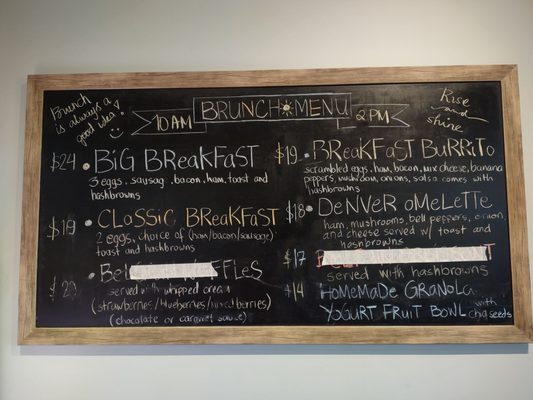 Brunch
is always a
good idea!
10AM
BRUNCH MENU
2PM
Rise
and
shine
$24 BiG BReaKFaST
3 eggs, sausag, bacon, ham, toast and
hashbrowns
$19 CLaSSiC BReaKFAST
2 eggs, choice of (ham/bacon/sausage)
toast and hashbrowns
Bel FFLes
served with whipped cream
(strawberries/blueberries/mixed berries)
(chocolate or caramel sauce)
$19 BReaKFaST BuRRiTo
scrambled eggs, ham, bacon, mix cheese, banana
peppers, mushroom, onions, salsa comes with
hashbrowns
$18 DeNVeR oMeLeTTe
ham, mushrooms, bell peppers, onion
and cheese served w/ toast and
hashbrowns
$17
served with hashbrowns
$14 HoMeMaDe GRaNoLa
YoGURT FRuiT BoWL with
chia seeds